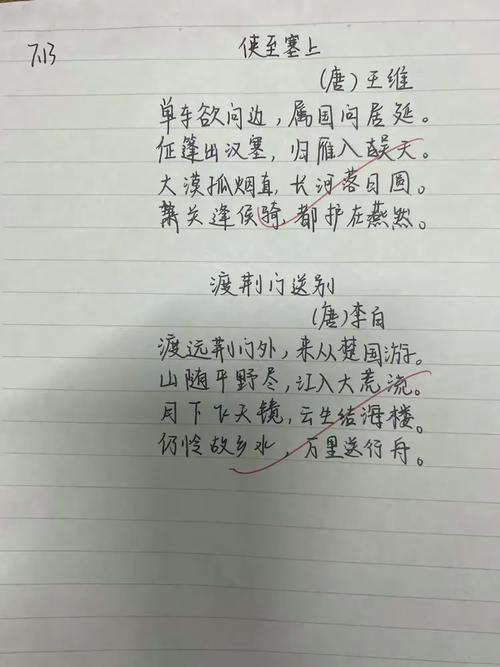 7.13
使至塞上
(唐)王维
单车欲问边，属国问居延。
征篷出汉塞，归雁入胡天。
大漠孤烟直，长河落日圆。
萧关逢侯骑，都护在燕然。
渡荆门送别
(唐)李白
渡远荆门外，来从楚国游。
山随平野尽，江入大荒流。
月下飞天镜，云生结海楼。
仍怜故乡水，万里送行舟。